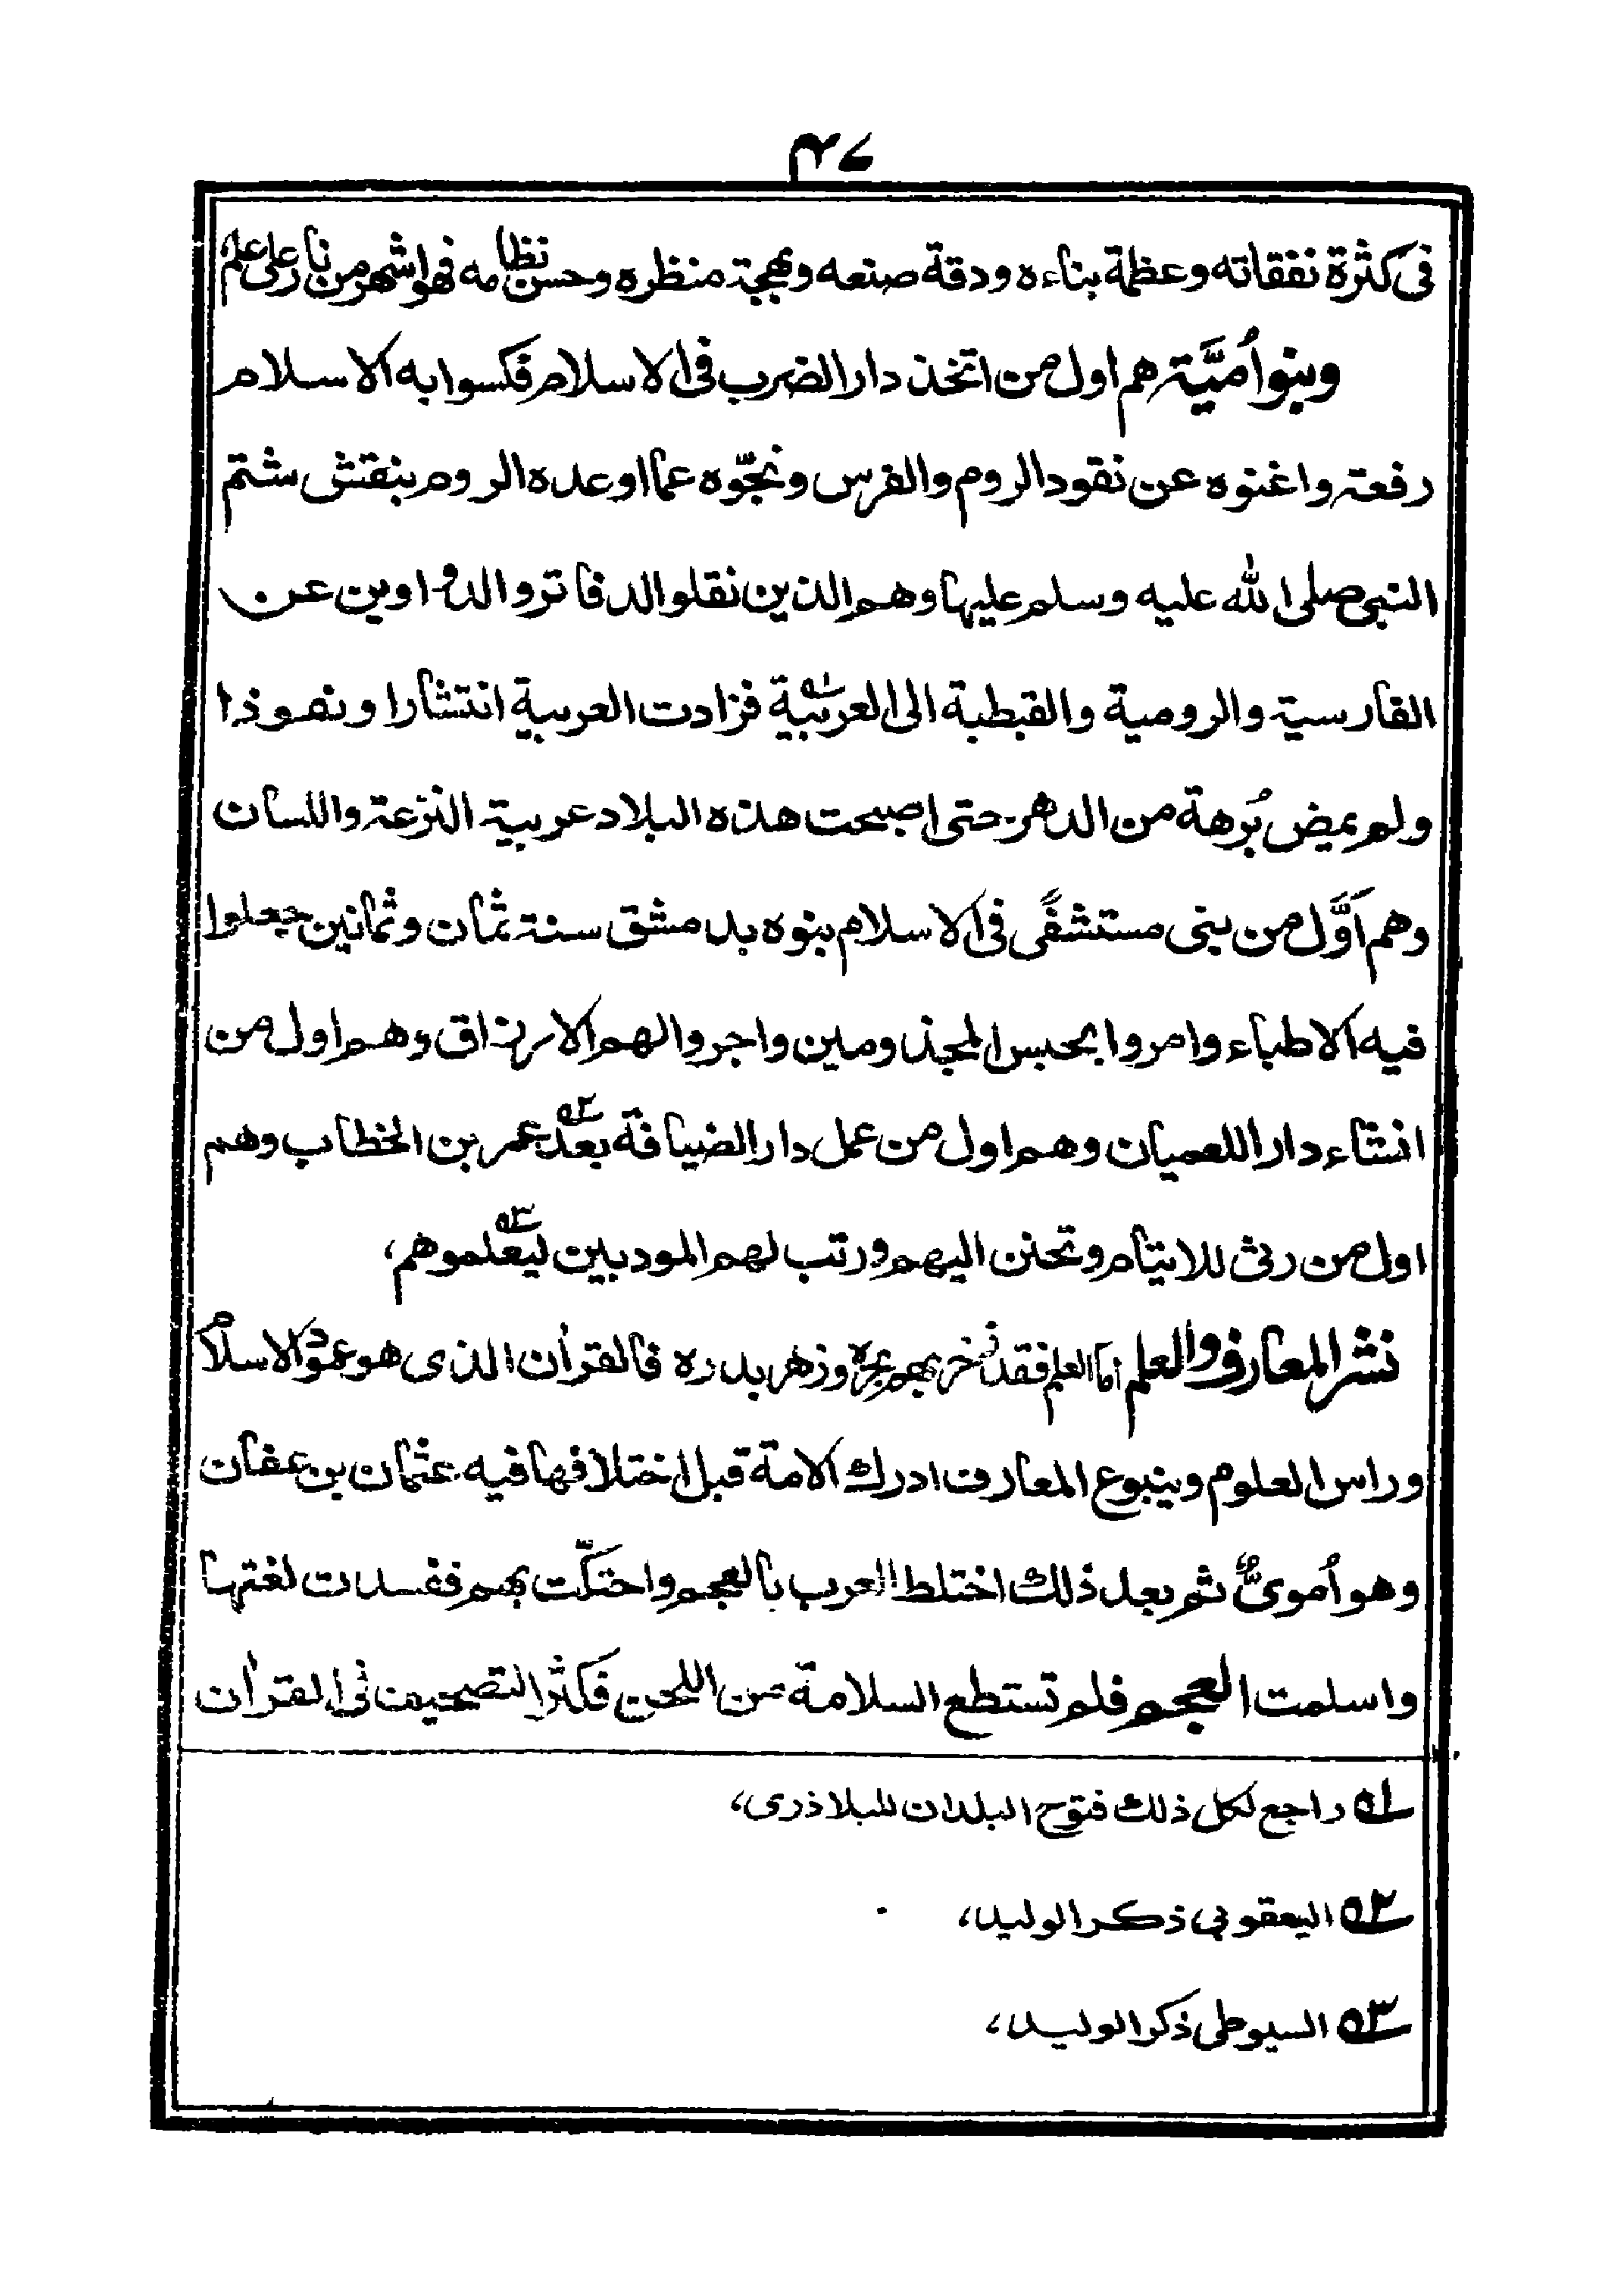 ٣٤
فى كثرة نفقاته وعظمة بناءه ودقة صنعه وبهجة منظره وحسن نظامه فهو اشهر من نار على علم
وبنو اُميَّة هم اول من اتخذ دار الضرب فى الاسلام فكسوا به الاسلام
رفعة واغنوه عن نقود الروم والفرس ونجّوه عما اوعده الروم بنقش شتم
النبى صلى الله عليه وسلم عليها وهم الذين نقلوا الدفاتر والدواوين عن
الفارسية والرومية والقبطية الى العربية ؁١ فزادت العربية انتشارا ونفوذا
ولم يمض بُرهة من الدهر حتى اصبحت هذه البلاد عربية النزعة واللسان
وهم اَوَّل من بنى مستشفًى فى الاسلام بنوه بدمشق سنة ثمان وثمانين جعلوا
فيه الاطباء وامروا بحبس المجذومين واجروا لهم الارزاق وهم اول من
انشاء دارا للعميان وهم اول من عمل دار الضيافة بعد ؁٢ عمر بن الخطاب وهم
اول من رثى للايتام وتحنن اليهم ورتب لهم المودبين ليعلموهم ؁٣،
نشر المعارف والعلم اما العلم فقد زخر بهم بحره وزهر بدره فالقراٰن الذى هو عمود الاسلام
وراس العلوم وينبوع المعارف ادرك الامة قبل اختلافها فيه عثمان بن عفان
وهو اُموىٌّ ثم بعد ذلك اختلط العرب بالعجم واحتكّت بهم ففسدت لغتها
واسلمت العجم فلم تستطع السلامة من اللحن فكثر التصحيف فى القراٰن
؁١ راجع لكل ذلك فتوح البلدان للبلاذرى،
؁٢ اليعقوبى ذكر الوليد،
؁٣ السيوطى ذكر الوليد،